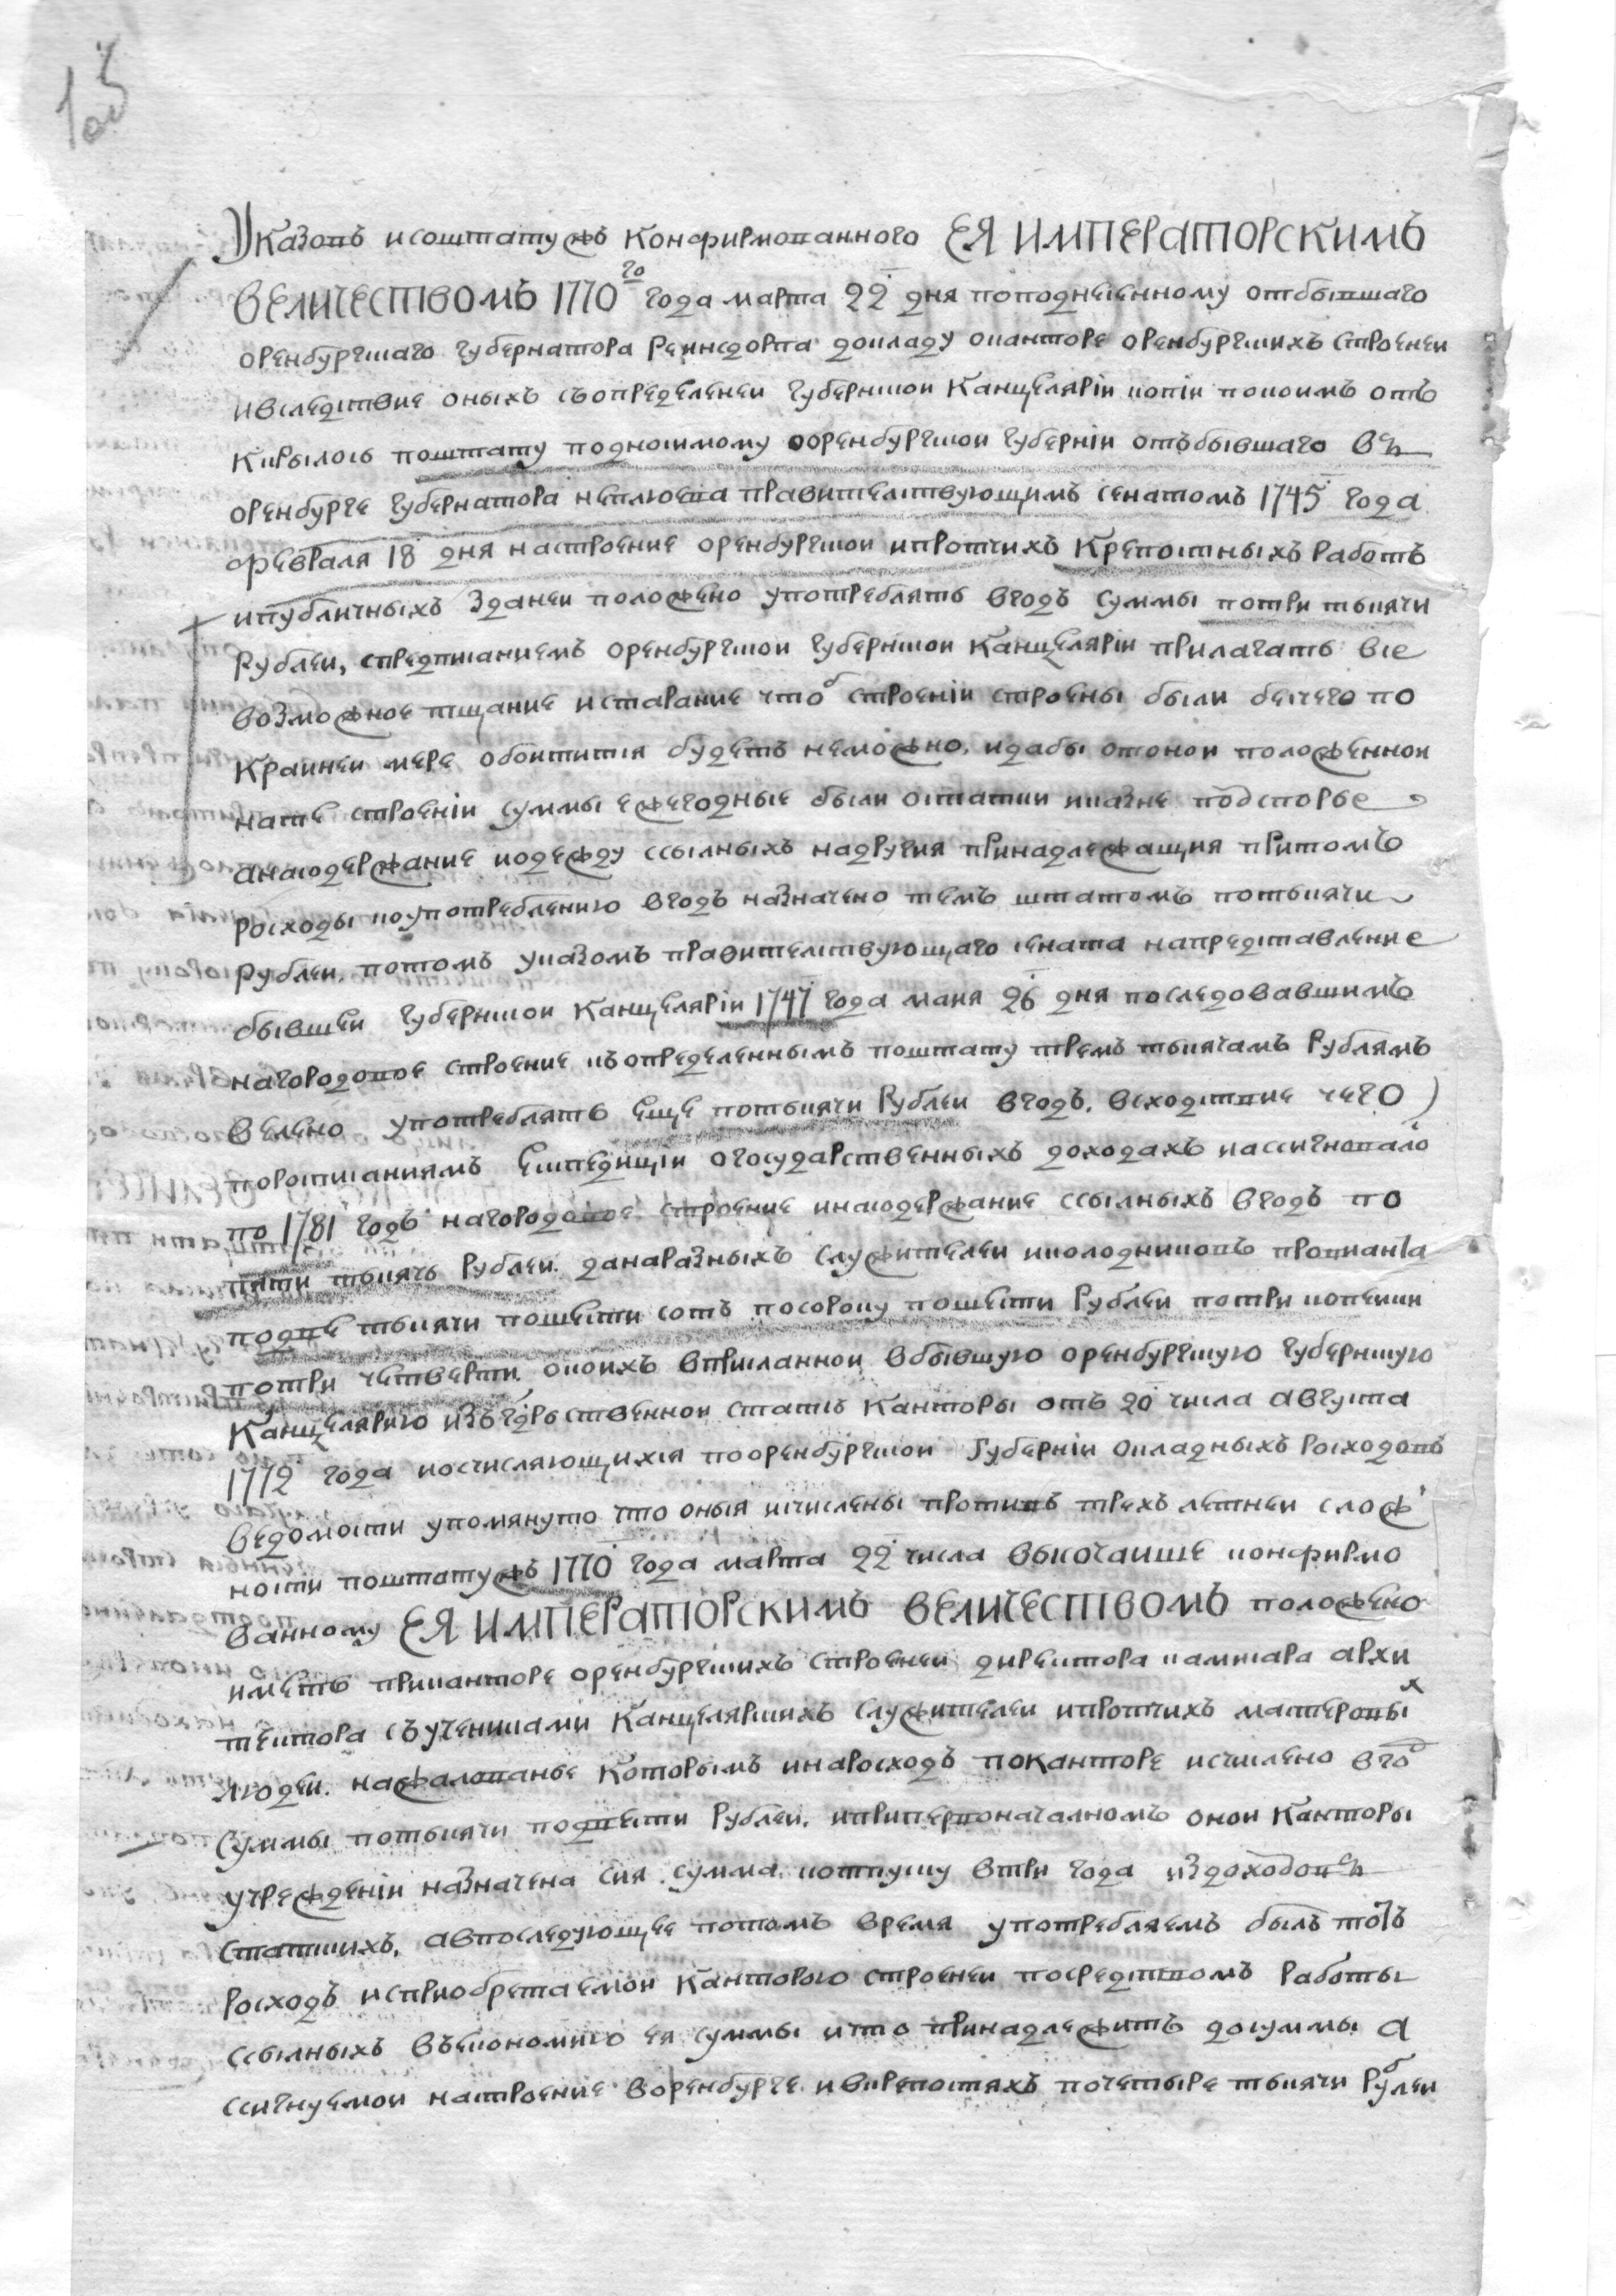 Указовъ исоштату жъ Конфирмованного ЕЯ ИМПЕРАТОРСКИМЪ
ВЕЛИЧЕСТВОМЪ 1770го года марта 22 дня поподнесенному отбывшаго
оренбургскаго губернатора Реинсдорпа докладу оканторе оренбургскихъ строенеи
ивследствие оныхъ съопределенеи губернскои Канцелярїи копїи покоимъ отъ
Крылось поштату подносимому ооренбургскои губернїи отъбывшаго въ
оренбурге губернатора неплюева правителствующимъ сенатомъ 1745 года
февраля 18 дня настроение оренбургскои ипротчихъ Крепостныхъ работъ
ипубличныхъ зданеи положено употреблять вгодъ суммы потри тысячи
рублеи, спредписаниемъ оренбургскои губернскои Канцелярїи прилагать все
возможное тщание истарание чтоб строенїи строены были безчего по
Краинеи мере обоитится будетъ неможно, идабы отонои положеннои
нате строенїи суммы ежегодные были остатки иказне подспорье
анасодержание иодежду ссылныхъ надругия принадлежащия притомъ
росходы коупотреблению вгодъ назначено темъ штатомъ потысячи
рублеи. потомъ указомъ правителствующаго сената напредставление
бывшеи губернскои Канцелярїи 1747 года маия 26 дня последовавшимъ
нагородовое строение къопределеннымъ поштату тремъ тысячамъ рублямъ
велено употреблять еще потысячи рублеи вгодъ. всходствие чего
порописаниямъ Експедицїи огосударственныхъ доходахъ иассигновало
по 1781 годъ нагородовое строение инасодержание ссылныхъ вгодъ по
пяти тысячь рублеи. данаразныхъ служителеи иколодниковъ провианта
подве тысячи пошести сотъ посороку пошести рублеи потри копеики
потри четверти. окоихъ вприсланнои вбывшую оренбургскую губернскую
Канцелярию изъ гдрьственнои статсъ Канторы отъ 20 числа августа
1772 года иосчисляющихся пооренбургскои губернїи окладныхъ росходовъ
ведомости упомянуто что оныя исчислены противъ трехъ летнеи слож
ности поштату жъ 1770 года марта 22 числа высочаише конфирмо
ванному ЕЯ ИМПЕРАТОРСКИМЪ ВЕЛИЧЕСТВОМЪ положено
иметь приканторе оренбургскихъ строенеи директора камисара архи
тектора съучениками Канцелярскихъ служителеи ипротчихъ мастеровых
людеи. нажалованье Которымъ инаросходъ поканторе исчислено вго
суммы потысячи подвести рублеи. иприпервоначалномъ онои Канторы
учрежденїи назначена сия сумма котпуску втри года издоходовъ
статскихъ, авпоследующее потомъ время употребляемъ былъ тотъ
росходъ исприобретаемои Канторою строенеи посредствомъ работы
ссылныхъ въекономию ея суммы ичто принадлежитъ досуммы а
ссигнуемои настроение воренбурге ивкрепостяхъ почетыре тысячи рублеи